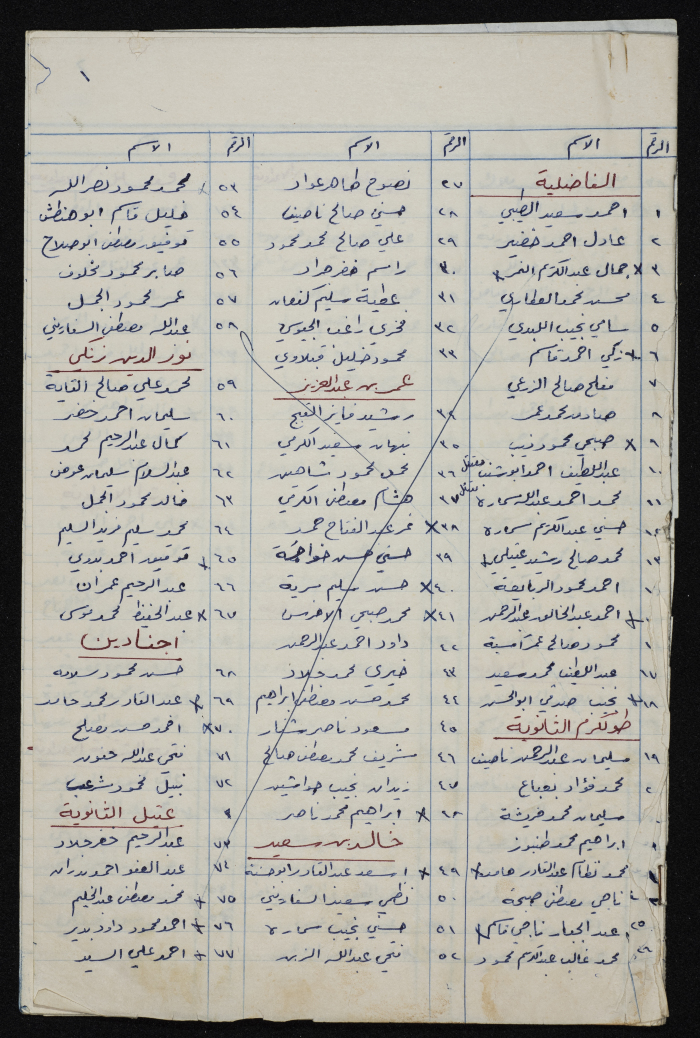 ١
الرقم الاسم
الفاضلية
١ احمد سعيد الطيبي
٢ عادل احمد خضير
٣ × جمال عبدالكريم النمر
٤ محمد العطاري
٥ سامي نجيب اللبدي
٦ × زكي احمد قاسم
٧ مفلح صالح الزعبي
٨ محمد عمر
٩ × صبحي محمود ذيب
١٠ عبد اللطيف احمد ابو شنب
١١ محمد احمد عبدالله سماره
١٢ حسني عبد الكريم سماره
١٣ محمد صالح رشيد عتيلي ×
احمد محمود الربايعة
× احمد عبد الخالق عبد الرحمن
محمود صالح عمر
١٧ عبد اللطيف محمد سعيد
١٨ × نجيب صدقي ابو الحسن
طولكرم الثانوية
١٩ سليمان عبد الرحمن ناصيف
٢ محمد فؤاد بعباع
سليمان محمد قريشة
ابراهيم محمد طنبوز
محمد نظام عبد القادر حامد ×
ناجي مصطفى صبحة
٢٥ عبد الجبار ناجي قاسم ×
٢٦ محمد غالب عبد الكريم محمود
الرقم الاسم
٢٧ نصوح طاهر عواد
٢٨ حسني صالح ناصيف
٢٩ علي صالح محمد محمود
٣٠ راسم خضر مراد
٣١ عطية سليم كنعان
٣٢ فخري راغب الجيوسي
٣٣ محمود خليل قبلاوي
عمر بن عبد العزيز
٣٤ رشيد فايز القبج
٣٥ نبهان سعيد الكرمي
٣٦ محمود شاهين
٣٧ هشام مصطفى الكرمي
٣٨ × عمر عبد الفتاح حمد
٣٩ حسني حسن خواجة
٤٠ × حسن سليم سرية
٤١ × محمد صبحي الاخرس
٤٢ داود احمد عبد الرحمن
٤٣ خيري محمد جلاد
٤٤ محمد حسن مصطفى ابراهيم
٤٥ مسعود ناصر
٤٦ شريف محمد مصطفى صالح
٤٧ زيدان نجيب
٤٨ × ابراهيم محمد ناصر
خالد بن سعيد
٤٩ × اسعد عبد القادر
٥٠ نظمي سعيد السفاريني
٥١ حسني نجيب سماره
٥٢ فتحي عبدالله الزبن
الرقم الاسم
٥٣ محمد محمود نصر الله
٥٤ خليل قاسم ابو حنطش
٥٥ توفيق مصطفى ابو صلاح
٥٦ صابر محمود مخلوف
٥٧ عمر محمود الجمل
٥٨ عبدالله مصطفى السفاريني
نور الدين زنكي
٥٩ محمد علي صالح
٦٠ سليمان احمد خضر
٦١ كمال عبد الرحيم محمد
٦٢ عبد السلام سليمان عوض
٦٣ خالد محمود الجمل
٦٤ محمد سليم
٦٥ × توفيق احمد بدوي
٦٦ عبد الرحيم عمران
٦٧ × عبد الحفيظ محمد موسى
اجنادين
٦٨ حسن محمود سلامه
٦٩ × عبد القادر محمد حامد
٧٠ × احمد حسن مصلح
٧١ فتحي عبدالله
٧٢ نبيل محمود شرعب
عتيل الثانوية
٧٣ عبد الرحيم خضر جلاد
٧٤ عبد العفو احمد بدران
٧٥ × محمد مصطفى عبد الحليم
٧٦ × احمد محمود داود بدير
٧٧ × احمد علي السيد